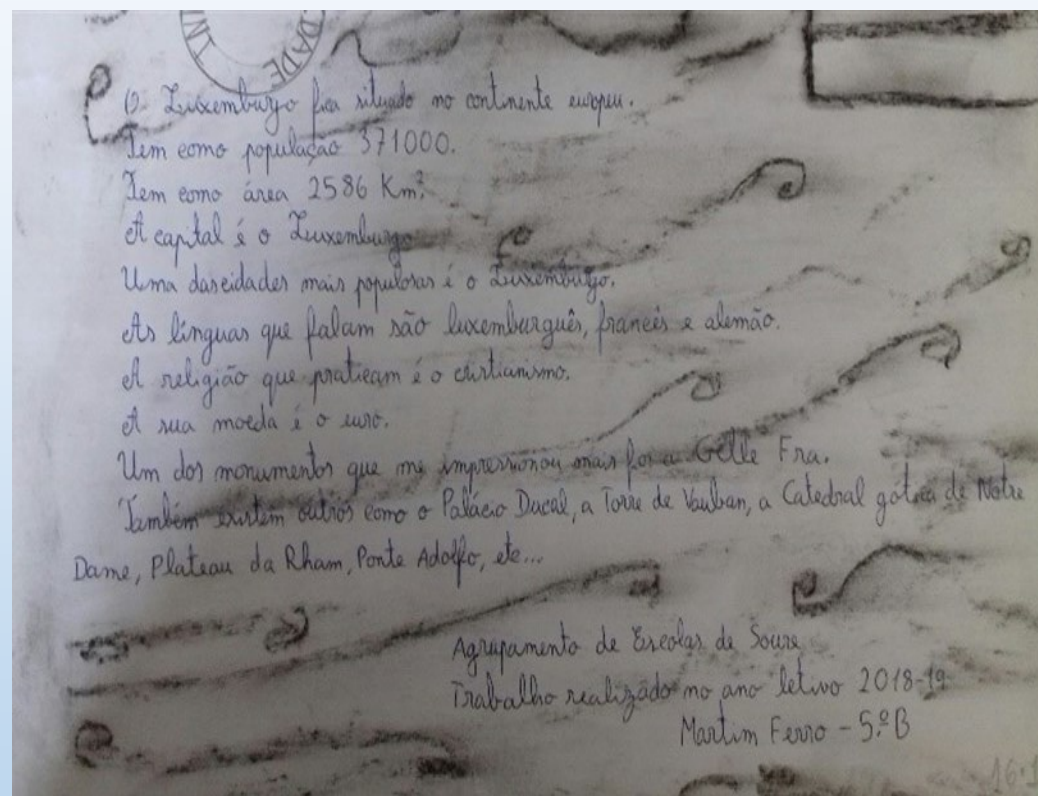 DADE
O Luxemburgo fica situado no continente europeu.
Tem como população 371000.
Tem como área 2586 Km².
A capital é o Luxemburgo
Uma das cidades mais populosas é o Luxemburgo.
As línguas que falam são luxemburguês, francês e alemão.
A religião que praticam é o cristianismo.
A sua moeda é o euro.
Um dos monumentos que me impressionou mais foi a Gëlle Fra.
Também existem outros como o Palácio Ducal, a Torre de Vauban, a Catedral gótica de Notre
Dame, Plateau da Rham, Ponte Adolfo, etc...
Agrupamento de Escolas de Soure
Trabalho realizado no ano letivo 2018-19
Martim Ferro - 5.º B